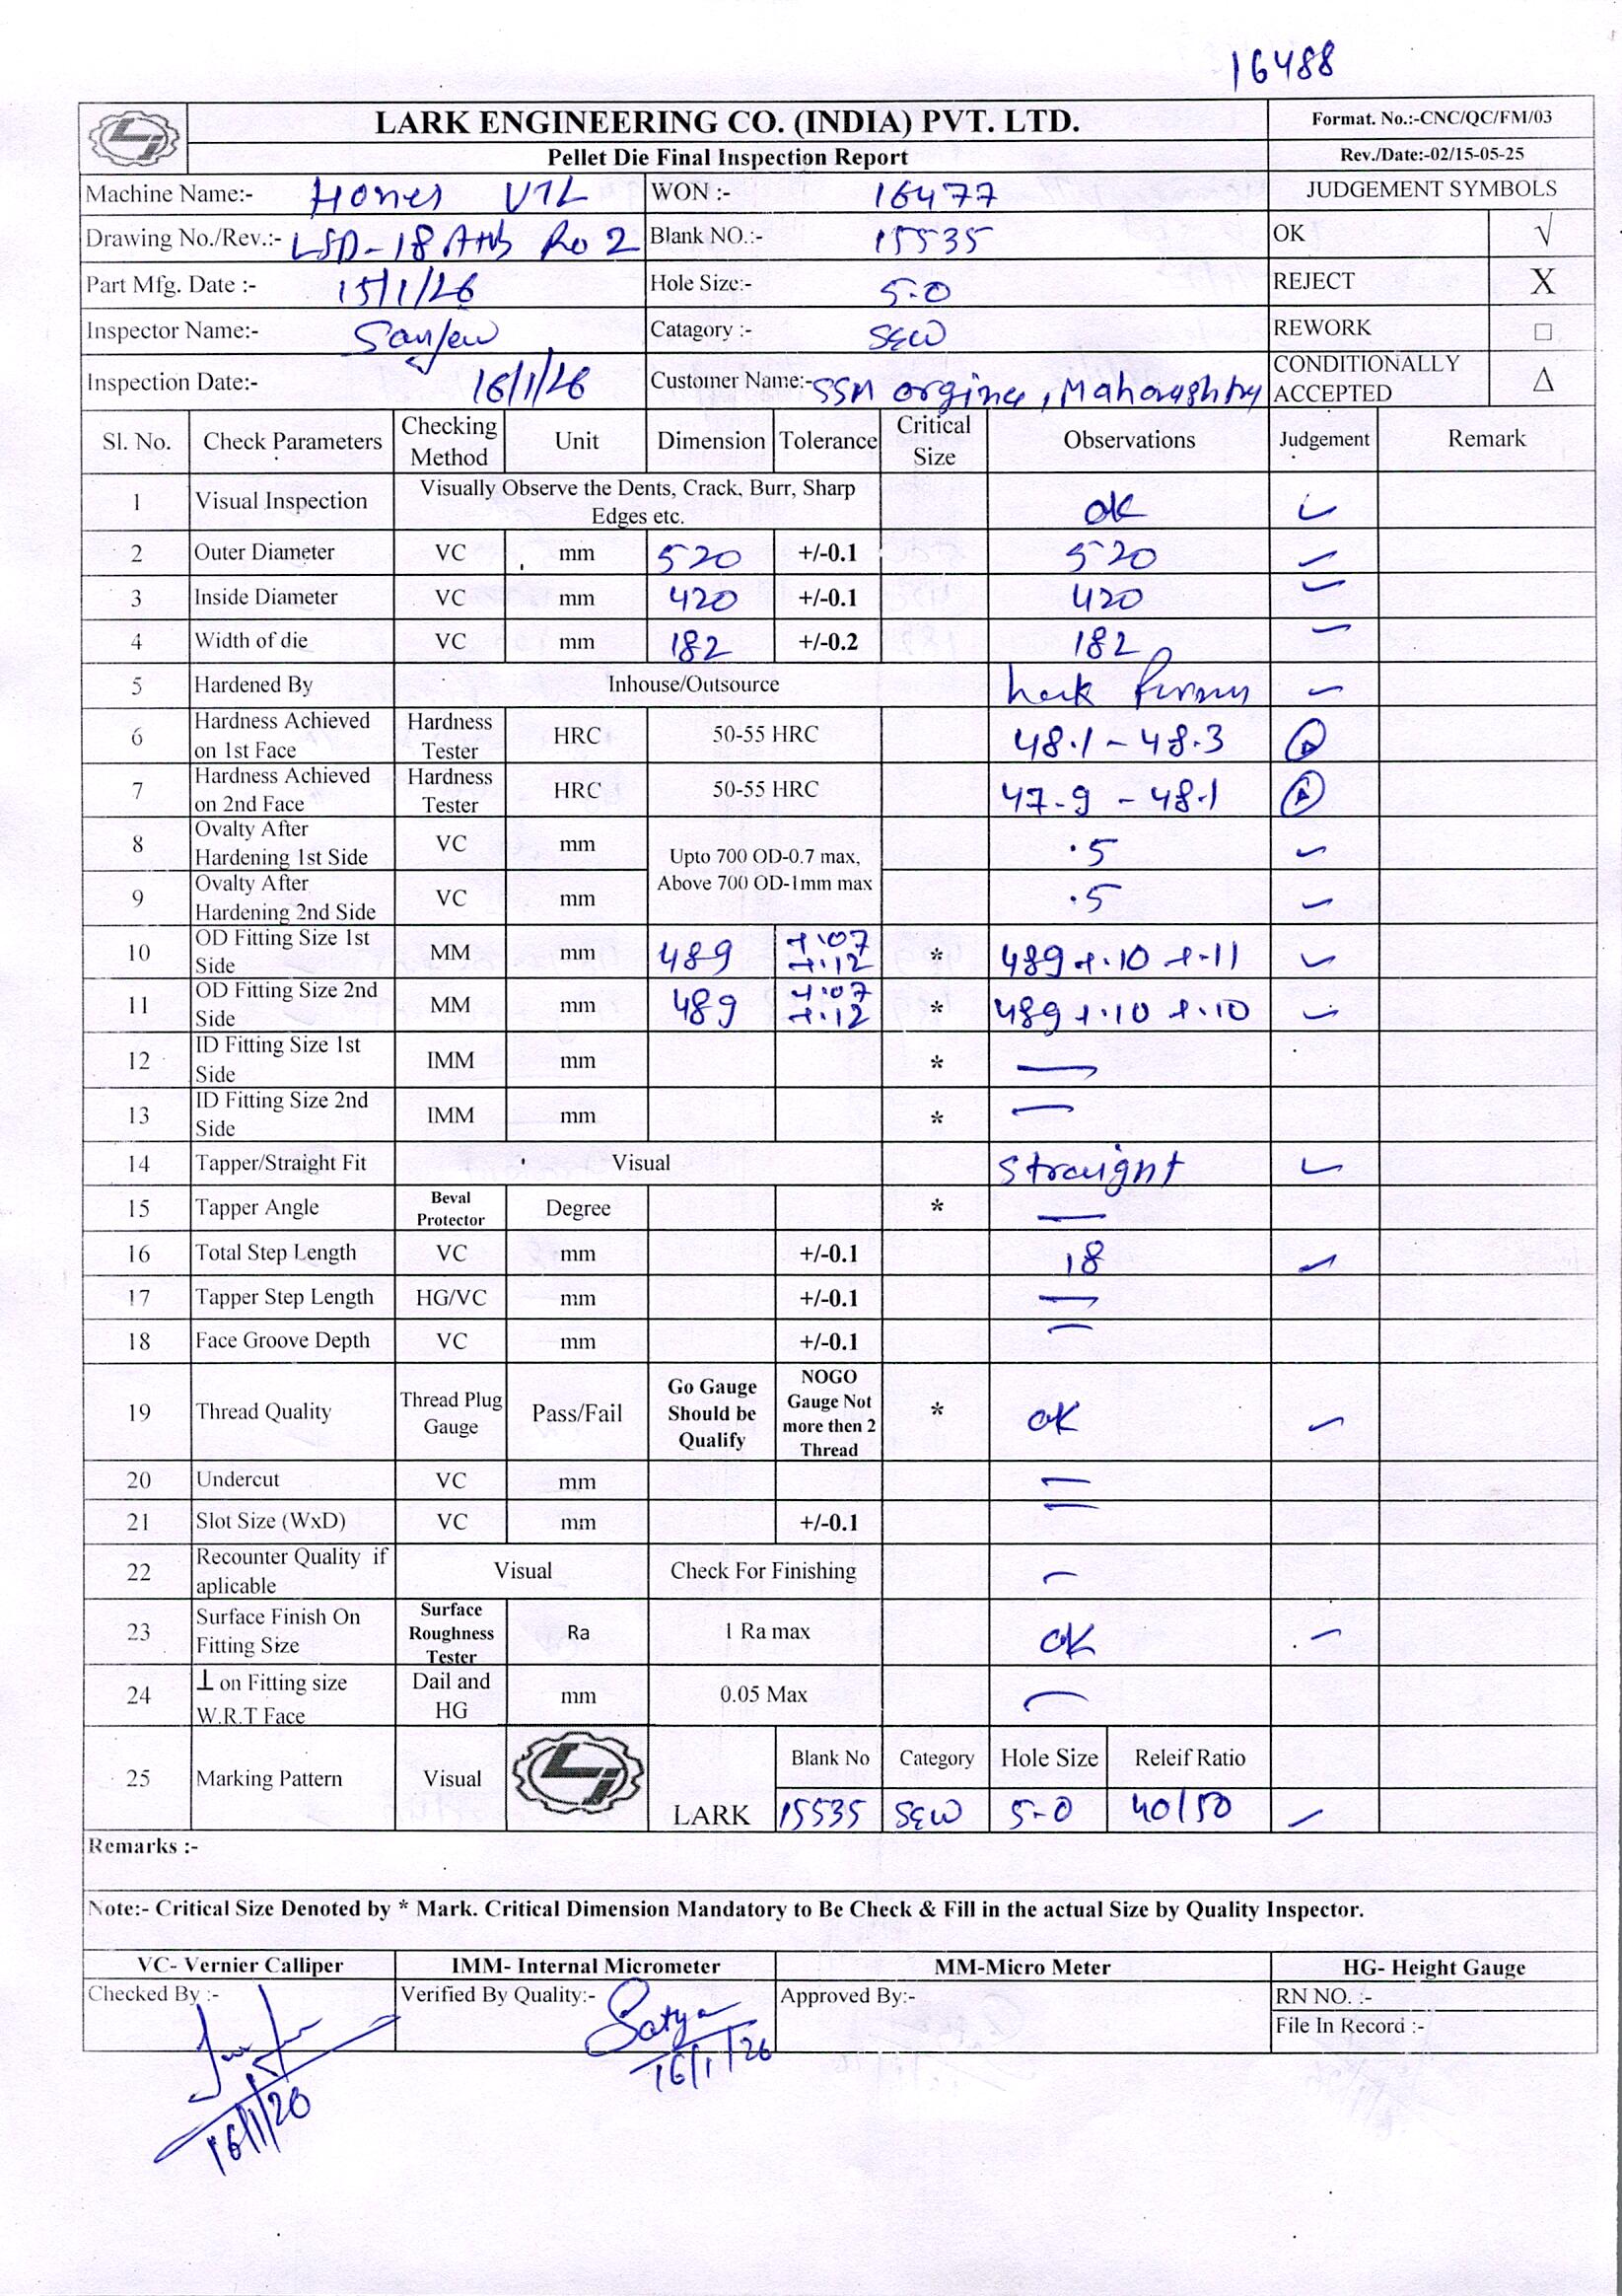 16488
LARK ENGINEERING CO. (INDIA) PVT. LTD.
Format. No.:-CNC/QC/FM/03
Pellet Die Final Inspection Report
Rev./Date:-02/15-05-25
Machine Name:- VTL WON :- 16477 JUDGEMENT SYMBOLS
Drawing No./Rev.:- LSD-18 Ro 2 Blank NO.:- 15535 OK √
Part Mfg. Date :- 15/1/26 Hole Size:- 5.0 REJECT X
Inspector Name:- Sanjeev Catagory :- SEW REWORK □
Inspection Date:- 16/1/26 Customer Name:- SSM CONDITIONALLY ACCEPTED Δ
Sl. No. Check Parameters Checking Method Unit Dimension Tolerance Critical Size Observations Judgement Remark
1 Visual Inspection Visually Observe the Dents, Crack, Burr, Sharp Edges etc. ok ✓
2 Outer Diameter VC mm 520 +/-0.1 520 ✓
3 Inside Diameter VC mm 420 +/-0.1 420 ✓
4 Width of die VC mm 182 +/-0.2 182 ✓
5 Hardened By Inhouse/Outsource ✓
6 Hardness Achieved on 1st Face Hardness Tester HRC 50-55 HRC 48.1 - 48.3
7 Hardness Achieved on 2nd Face Hardness Tester HRC 50-55 HRC 47.9 - 48.1
8 Ovalty After Hardening 1st Side VC mm Upto 700 OD-0.7 max, Above 700 OD-1mm max .5 ✓
9 Ovalty After Hardening 2nd Side VC mm .5 ✓
10 OD Fitting Size 1st Side MM mm 489 +.07 +.12 * 489 +.10 +.11 ✓
11 OD Fitting Size 2nd Side MM mm 489 +.07 +.12 * 489 +.10 +.10 ✓
12 ID Fitting Size 1st Side IMM mm * —
13 ID Fitting Size 2nd Side IMM mm * —
14 Tapper/Straight Fit Visual Straight ✓
15 Tapper Angle Beval Protector Degree * —
16 Total Step Length VC mm +/-0.1 18 ✓
17 Tapper Step Length HG/VC mm +/-0.1 —
18 Face Groove Depth VC mm +/-0.1 —
19 Thread Quality Thread Plug Gauge Pass/Fail Go Gauge Should be Qualify NOGO Gauge Not more then 2 Thread * ok ✓
20 Undercut VC mm —
21 Slot Size (WxD) VC mm +/-0.1 —
22 Recounter Quality if aplicable Visual Check For Finishing —
23 Surface Finish On Fitting Size Surface Roughness Tester Ra 1 Ra max ok ✓
24 ⊥ on Fitting size W.R.T Face Dail and HG mm 0.05 Max —
25 Marking Pattern Visual LARK Blank No Category Hole Size Releif Ratio
15535 SEW 5-0 40/50 ✓
Remarks :-
Note:- Critical Size Denoted by * Mark. Critical Dimension Mandatory to Be Check & Fill in the actual Size by Quality Inspector.
VC- Vernier Calliper IMM- Internal Micrometer MM-Micro Meter HG- Height Gauge
Checked By :- Verified By Quality:- Satya Approved By:- RN NO. :-
File In Record :-
16/1/26
16/1/26